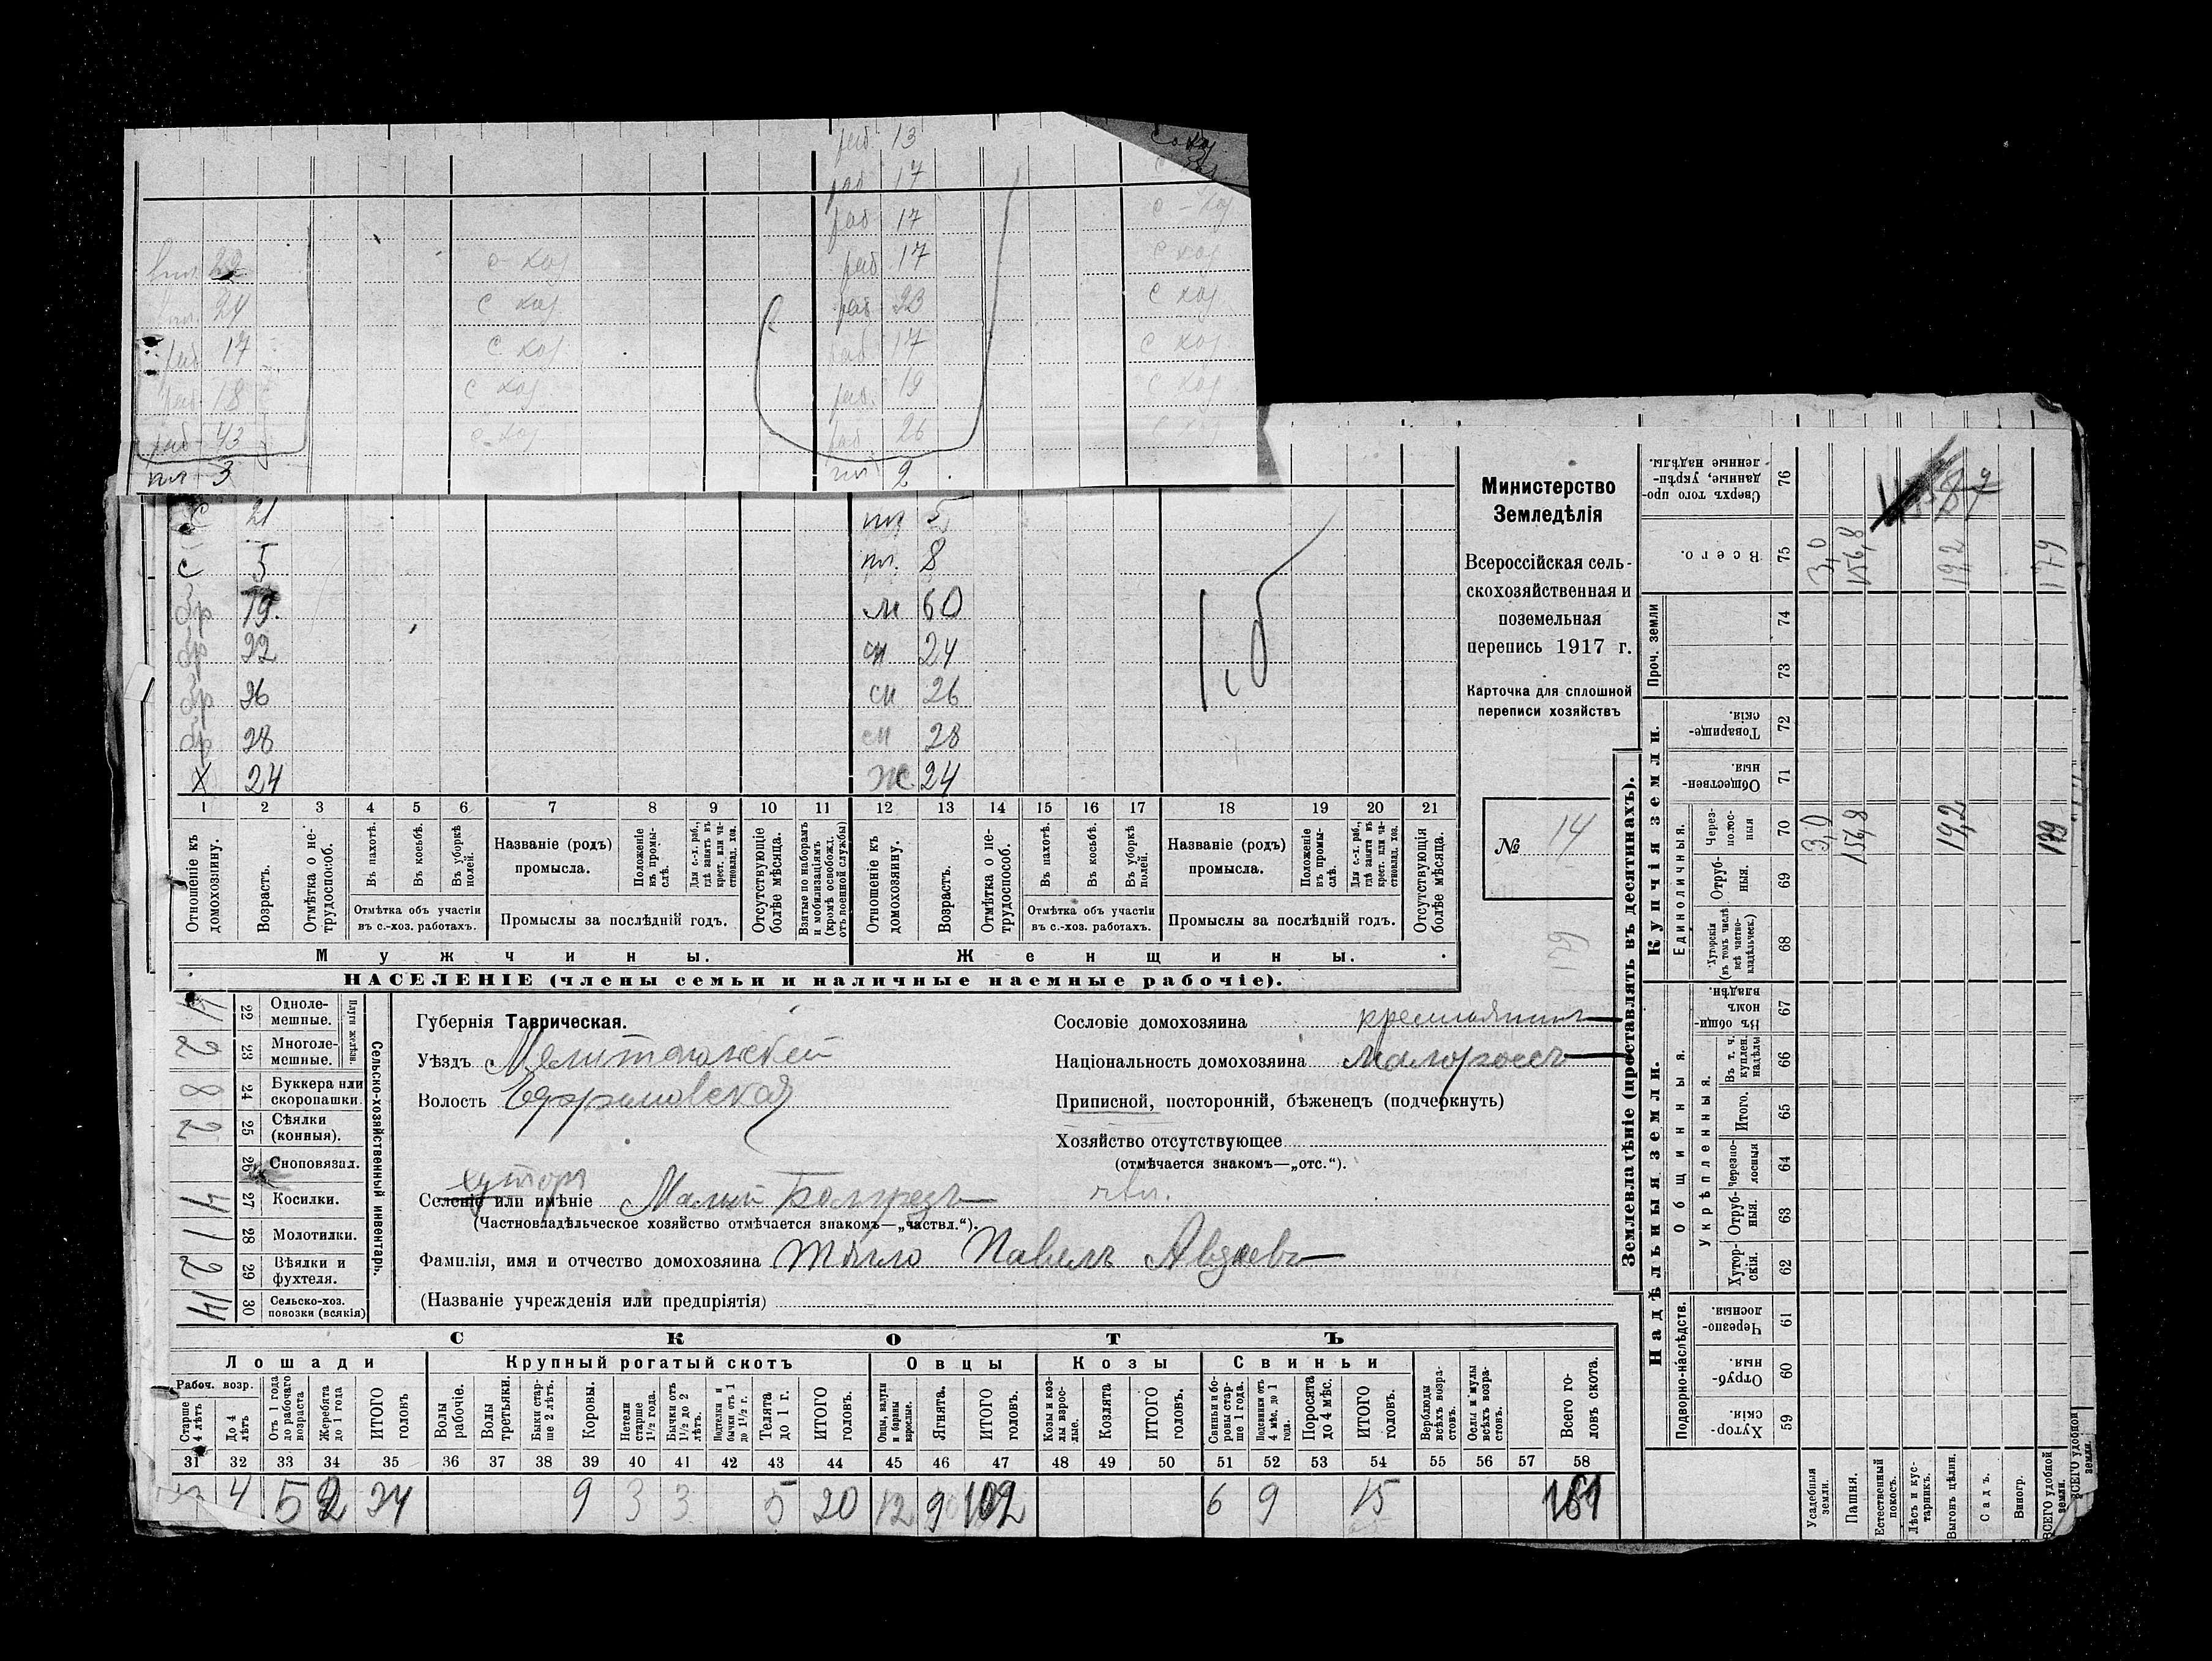 раб 13 с хоз
раб 17
раб 17 с-хоз
22 с-хоз раб 17 с хоз
24 с хоз раб 23 с хоз
раб 17 с хоз раб 17 с хоз
раб 18 с хоз раб. 19 с хоз
раб 43 с-хоз раб 26 с хоз
пл 3 пл 2
с 21 пл 5
с 5 пл. 8
бр 19. м 60
бр 22 сн 24
бр 26 сн 26
бр 28 сн 28
Х 24 Ж 24
1,б
1 2 3 4 5 6 7 8 9 10 11 12 13 14 15 16 17 18 19 20 21
Отношеніе къ домохозяину.
Возрастъ.
Отмѣтка о не-
трудоспособ.
Въ пахотѣ.
Въ косьбѣ.
Въ уборкѣ полей.
Отмѣтка объ участіи
въ с.-хоз. работахъ.
Названіе (родъ)
промысла.
Положеніе въ промы-
слѣ.
Для с.-х. раб.,
гдѣ занятъ въ
крест. или ча-
стновлад. хоз.
Промыслы за послѣдній годъ.
Отсутствующіе
болѣе мѣсяца.
Взятые по наборамъ
и мобилизаціямъ
(кромѣ освобожд.
отъ военной службы)
Отношеніе къ
домохозяину.
Возрастъ.
Отмѣтка о не-
трудоспособ.
Въ пахотѣ.
Въ косьбѣ.
Въ уборкѣ полей.
Отмѣтка объ участіи
въ с.-хоз. работахъ.
Названіе (родъ)
промысла.
Положеніе въ промы-
слѣ.
Для с.-х. раб.,
гдѣ занята въ
крест. или ча-
стновлад. хоз.
Промыслы за послѣдній годъ.
Отсутствующія
болѣе мѣсяца.
Мужчины. Женщины.
НАСЕЛЕНІЕ (члены семьи и наличные наемные рабочіе).
Министерство
Земледѣлія
Всероссійская сель-
скохозяйственная и
поземельная
перепись 1917 г.
Карточка для сплошной
переписи хозяйствъ
№ 14
179
Сельско-хозяйственный инвентарь.
Плуги желѣзн.
4 22 Одноле-
мешные.
2 23 Многоле-
мешные.
8 24 Буккера или
скоропашки.
2 25 Сѣялки
(конныя).
26 Сноповязал.
4 27 Косилки.
1 28 Молотилки.
2 29 Вѣялки и
фухтеля.
14 30 Сельско-хоз.
повозки (всякія)
Губернія Таврическая.
Уѣздъ Мелитопольскій
Волость Ефремовская
хуторъ
Селеніе или имѣніе Малый Болградъ чвл.
(Частновладѣльческое хозяйство отмѣчается знакомъ—„частвл.“).
Фамилія, имя и отчество домохозяина Тягло Павелъ Авдѣевъ
(Названіе учрежденія или предпріятія)
Сословіе домохозяина крестьянинъ
Національность домохозяина малороссъ
Приписной, посторонній, бѣженецъ (подчеркнуть)
Хозяйство отсутствующее
(отмѣчается знакомъ—„отс.“).
СКОТЪ
Лошади Крупный рогатый скотъ Овцы Козы Свиньи
Рабоч. возр.
Старше 4 лѣтъ
До 4 лѣтъ
Отъ 1 года
до рабочаго
возраста
Жеребята
до 1 года
ИТОГО
головъ
Волы
рабочіе.
Волы
третьяки.
Быки стар-
ше 2 лѣтъ.
Коровы.
Нетели
старше
1½ года.
Бычки отъ
1½ до 2
лѣтъ.
Подтелки и
бычки отъ 1
до 1½ г.
Телята
до 1 г.
ИТОГО
головъ.
Овцы, валухи
и бараны
взрослые.
Ягнята.
ИТОГО
головъ.
Козы и коз-
лы взрос-
лые.
Козлята
ИТОГО
головъ.
Свиньи и бо-
ровы стар-
ше 1 года.
Подсвинки отъ
4 мѣс. до 1
года.
Поросята
до 4 мѣс.
ИТОГО
головъ.
Верблюды
всѣхъ возра-
стовъ.
Ослы и мулы
всѣхъ возра-
стовъ.
Всего го-
ловъ скота.
31 32 33 34 35 36 37 38 39 40 41 42 43 44 45 46 47 48 49 50 51 52 53 54 55 56 57 58
4 5 2 24 9 3 3 5 20 12 90 102 6 9 15 161
Землевладѣніе (проставлять въ десятинахъ).
Надѣльныя земли. Купчія земли.
Подворно-наслѣдств.
Общинныя.
Укрѣпленныя.
Единоличныя.
Проч. земли
Хутор-
скія.
59
Отруб-
ныя.
60
Черезпо-
лосныя.
61
Хутор-
скія.
62
Отруб-
ныя.
63
Черезпо-
лосныя
64
Итого.
65
Въ т. ч.
куплен.
надѣлы
66
Въ общи-
номъ
владѣн.
67
Хуторскія
(въ томъ числѣ
всѣ частно-
владѣльческ.)
68
Отруб-
ныя.
69
Через-
полос-
ныя
70
Обществен-
ныя.
71
Товарище-
скія.
72
73
74
Всего.
75
Сверхъ того про-
данные, укрѣп-
ленные надѣлы.
76
Усадебныя
земли.
3,0 3,0
Пашня.
156,8 156,8
Естественный
покосъ.
Лѣсъ и кус-
тарникъ.
Выгонъ цѣлин.
19,2 19,2
Садъ.
Виногр.
ВСЕГО удобной
земли.
179 179
ВСЕГО удобной
земли.